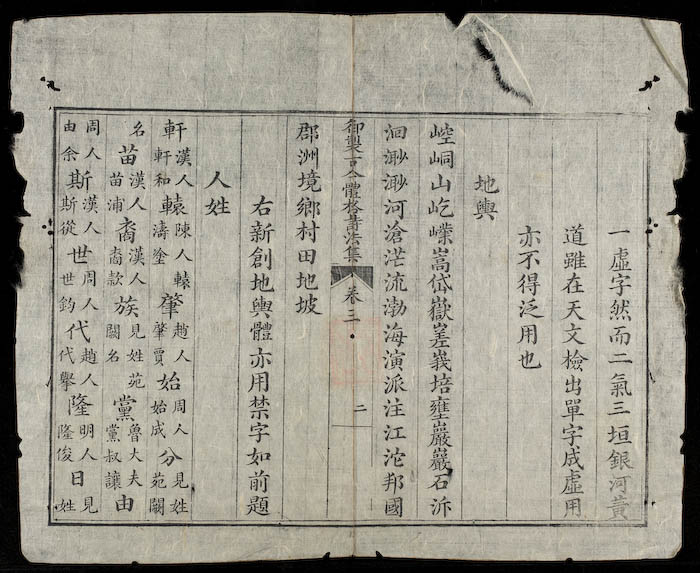 一虛字然而二氣三垣銀河黃
道雖在天文檢出單字成虛用
亦不得泛用也
地輿
崆峒山屹嶫嵩岱嶽差峩培壅巖巖石泝
洄渺渺河滄茫流渤海演派注江沱邦國
御製古今體格詩法集 卷三 二
郡洲境鄉村田地坡
右新創地輿體亦用禁字如前題
人姓
軒漢人軒和轅陳人轅濤塗肇趙人肇賈始周人始成分見姓苑闕
名苗漢人苗浦裔漢人裔款族見姓苑闕名黨魯大夫黨叔讓由
周人由余斯漢人斯從世周人世鈞代趙人代舉隆明人隆俊日見姓